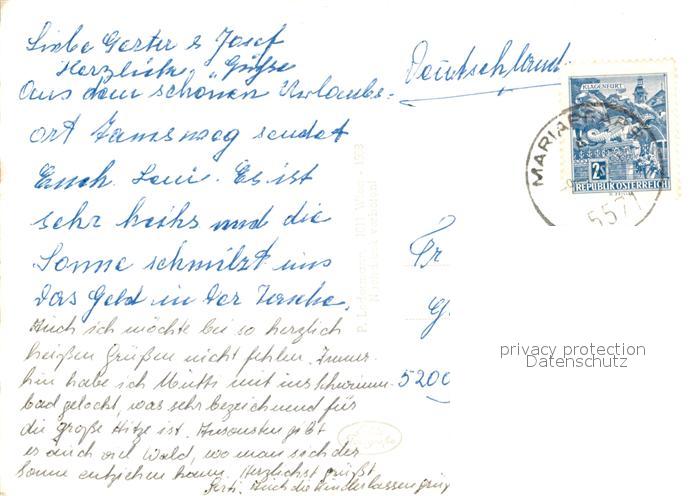 Liebe Gerter & Josef
Herzliche Grüße
Aus dem schönen Urlaubs-
ort Tamsweg sendet
Euch Loui. Es ist
sehr heihs und die
Sonne schmilzt uns
das Geld in der Tasche.
Auch ich möchte bei so herzlich
heißen Grüßen nicht fehlen. Immer-
hin habe ich Mutti mit ins Schwimm-
bad gelockt, was sehr bezeichnend für
die große Hitze ist. Ansonsten gibt
es auch viel Wald, wo man sich der
Sonne entziehen kann. Herzlichst grüßt
Gerti. Auch die Kinder lassen grüß
Deutschland
KLAGENFURT
2S
REPUBLIK ÖSTERREICH
MARIAPFARR
5571
Fr
G
5200
privacy protection
Datenschutz